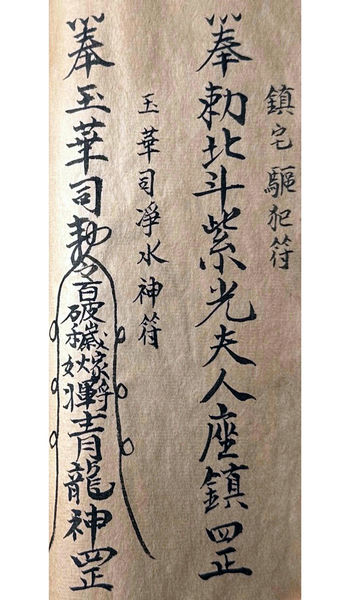 鎮宅驅犯符
奉勅北斗紫光夫人座鎮罡
玉華司淨水神符
奉玉華司勅令破穢將青龍神罡